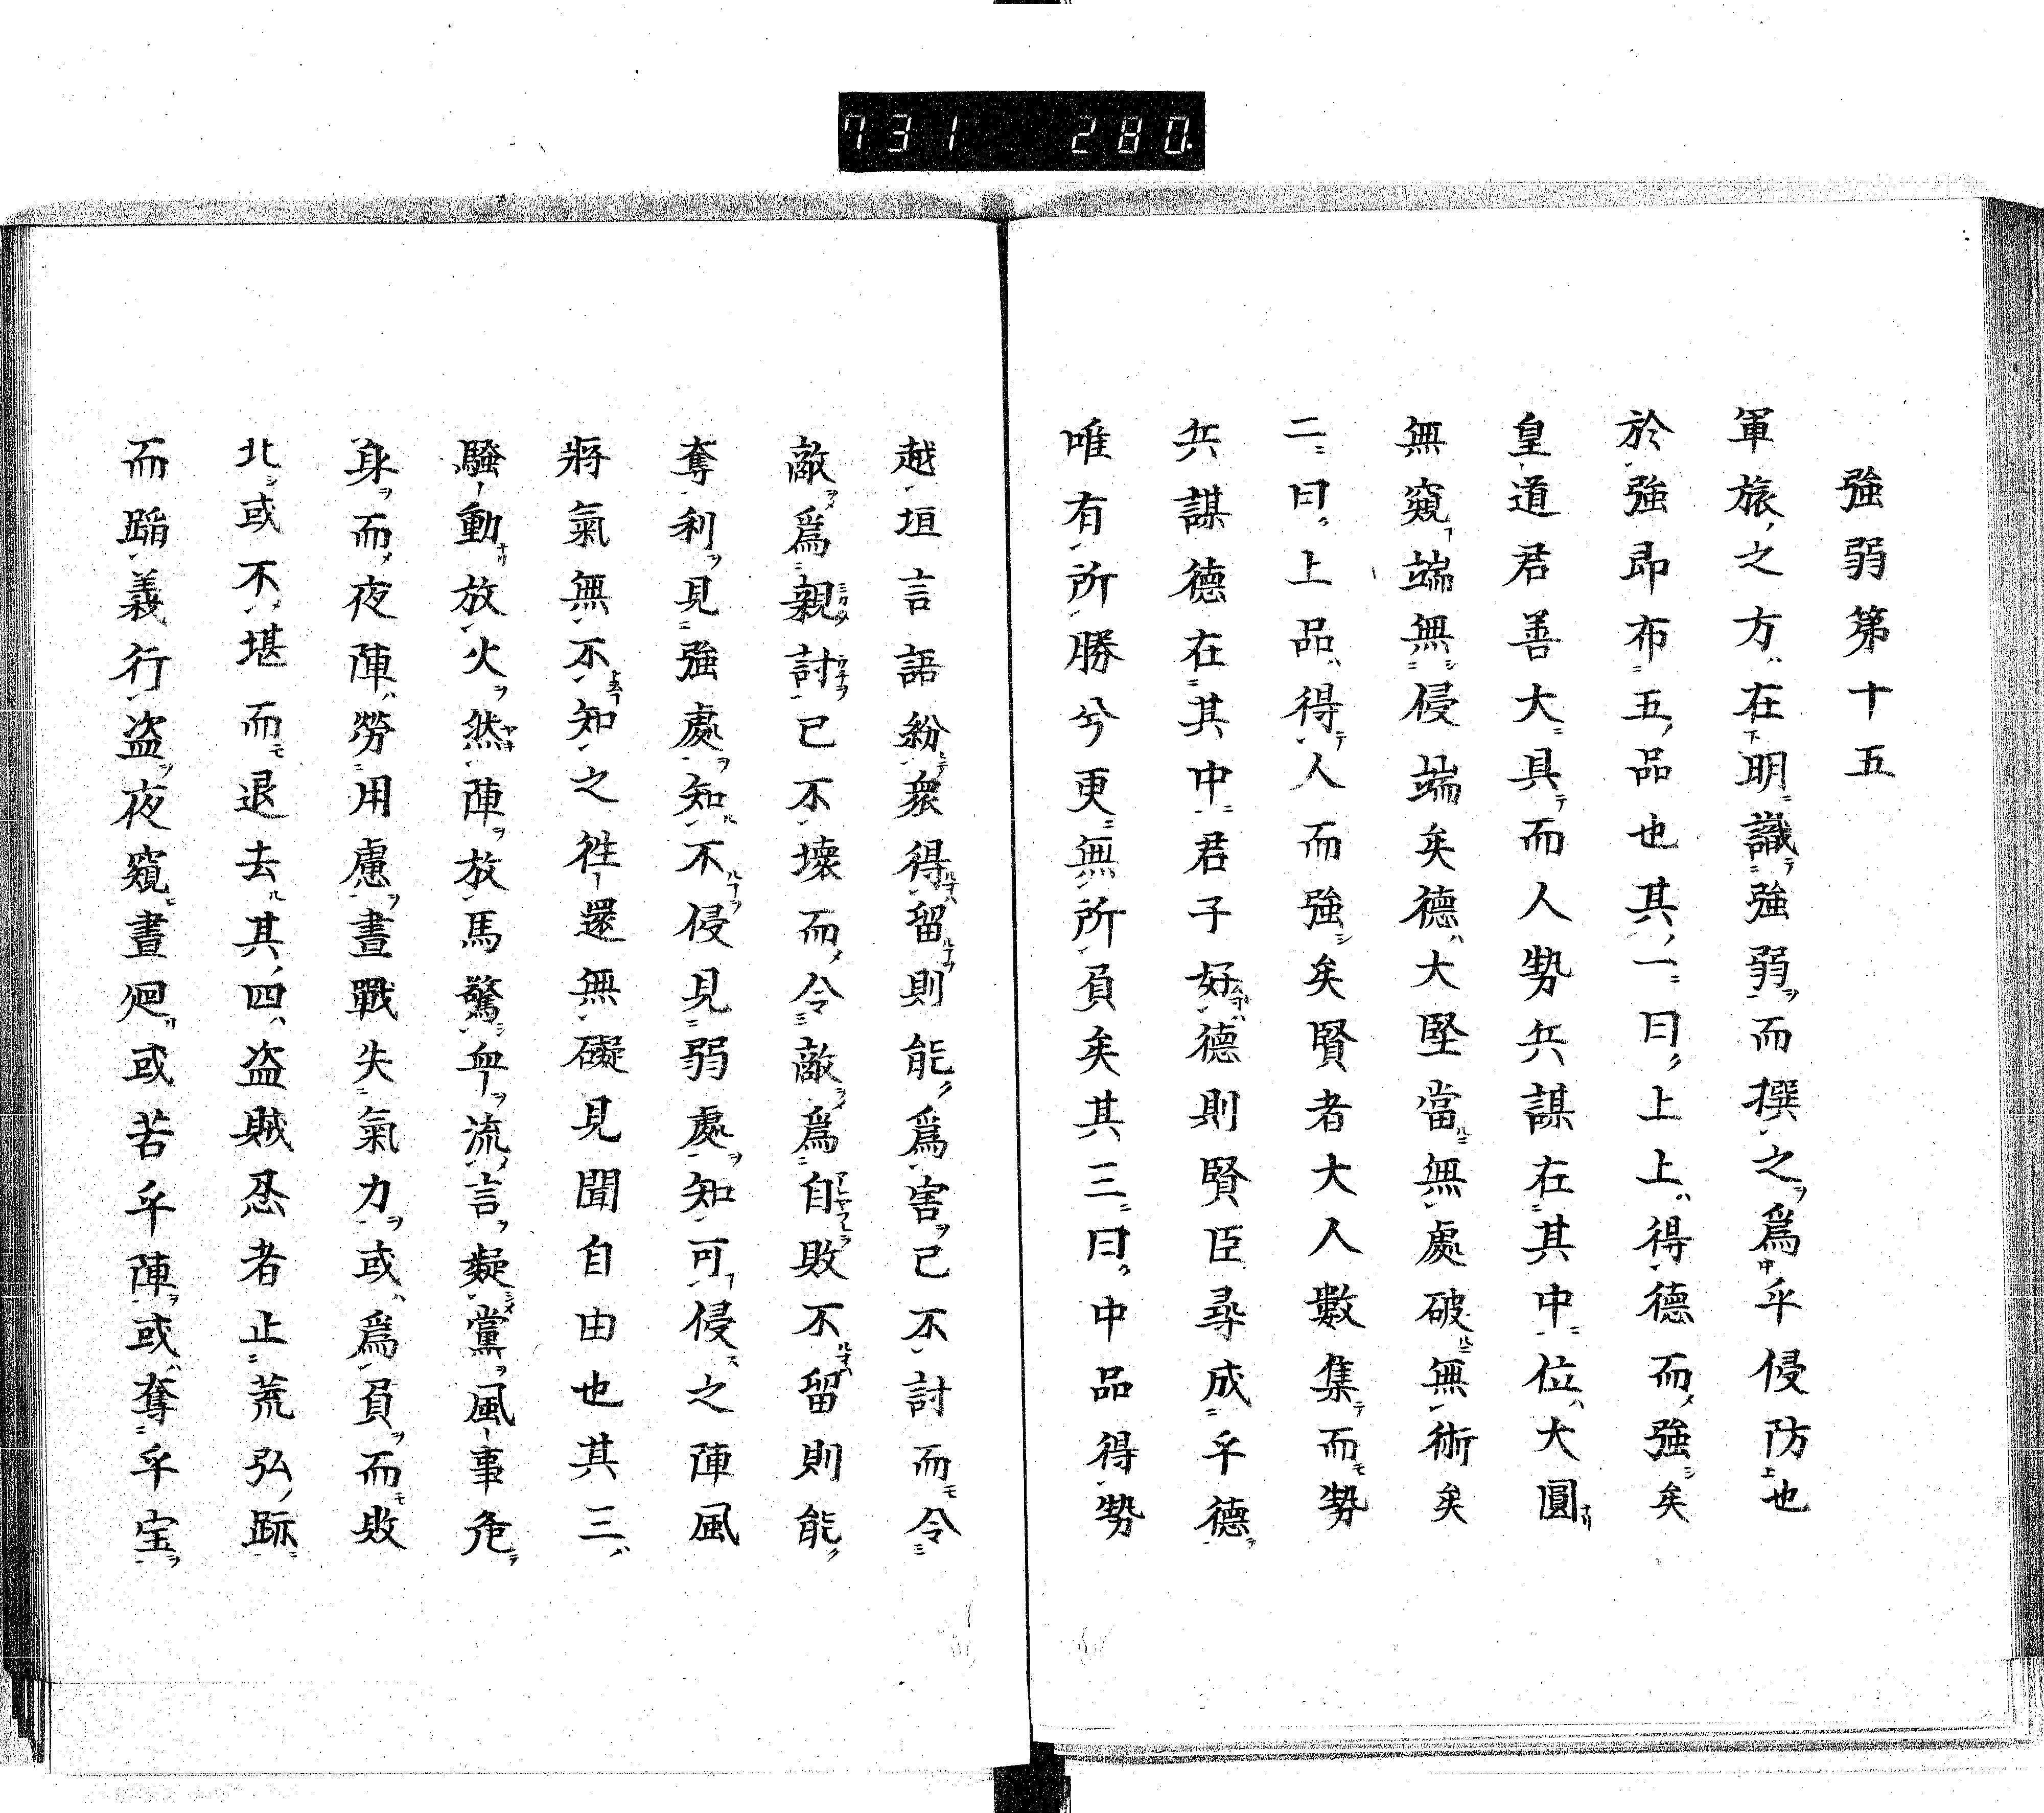 731 280
強弱第十五
軍旅之方在明識強弱而撰之爲乎侵防也
於強即布五品也其一曰上上得德而強矣
皇道君善大具而人勢兵謀在其中位大圓
無窺端無侵端矣德大堅當無處破無術矣
二曰上品得人而強矣賢者大人數集而勢
兵謀德在其中君子好德則賢臣尋成乎德
唯有所勝兮更無所負矣其三曰中品得勢
越垣言語紛衆得留則能爲害己不討而令
敵爲親討已不壞而令敵爲自敗不留則能
奪利見強處知不侵見弱處知可侵之陣風
將氣無不知之徃還無礙見聞自由也其三
騷動放火然陣放馬驚血流言凝黨風事危
身而夜陣勞用慮晝戰失氣力或爲負而敗
北或不堪而退去其四盗賊忍者止荒弘跡
而蹈義行盗夜窺晝廻或苦乎陣或奪乎宝